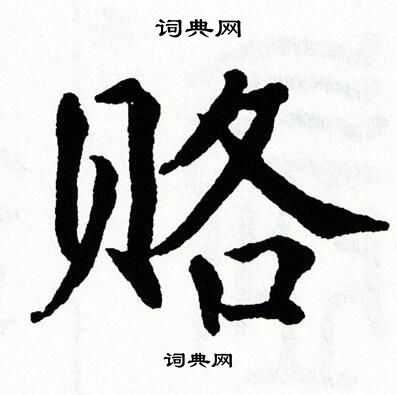 词典网
赂
词典网